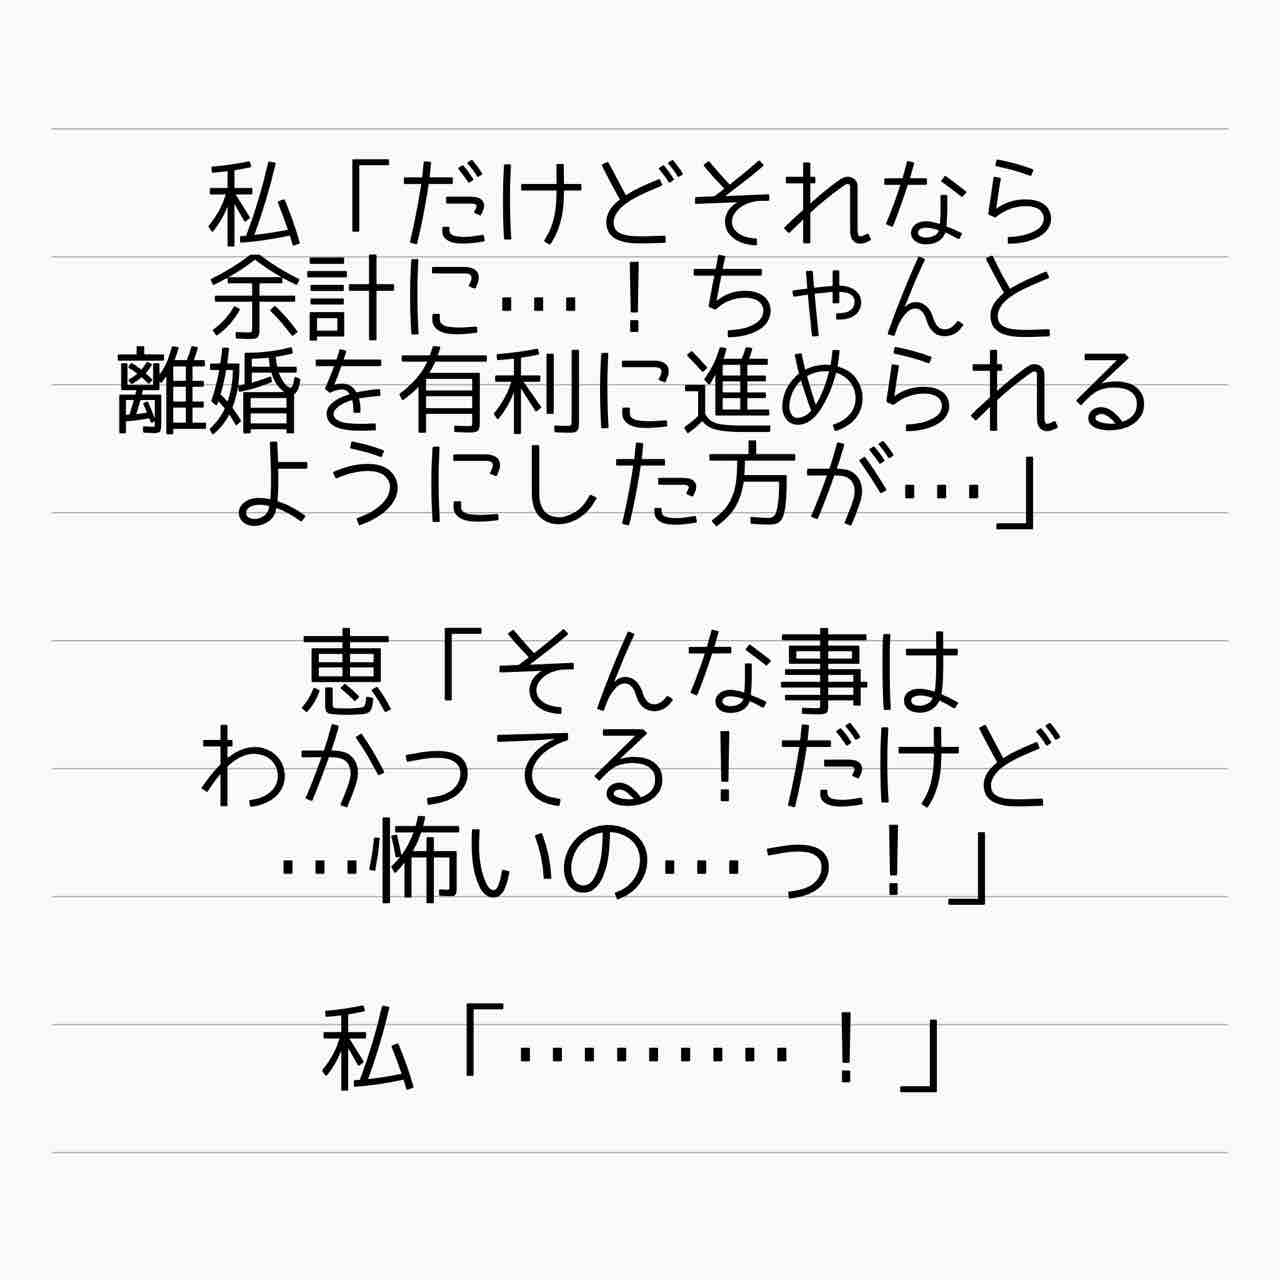 私「だけどそれなら
余計に…！ちゃんと
離婚を有利に進められる
ようにした方が…」
恵「そんな事は
わかってる！だけど
…怖いの…っ！」
私「………！」